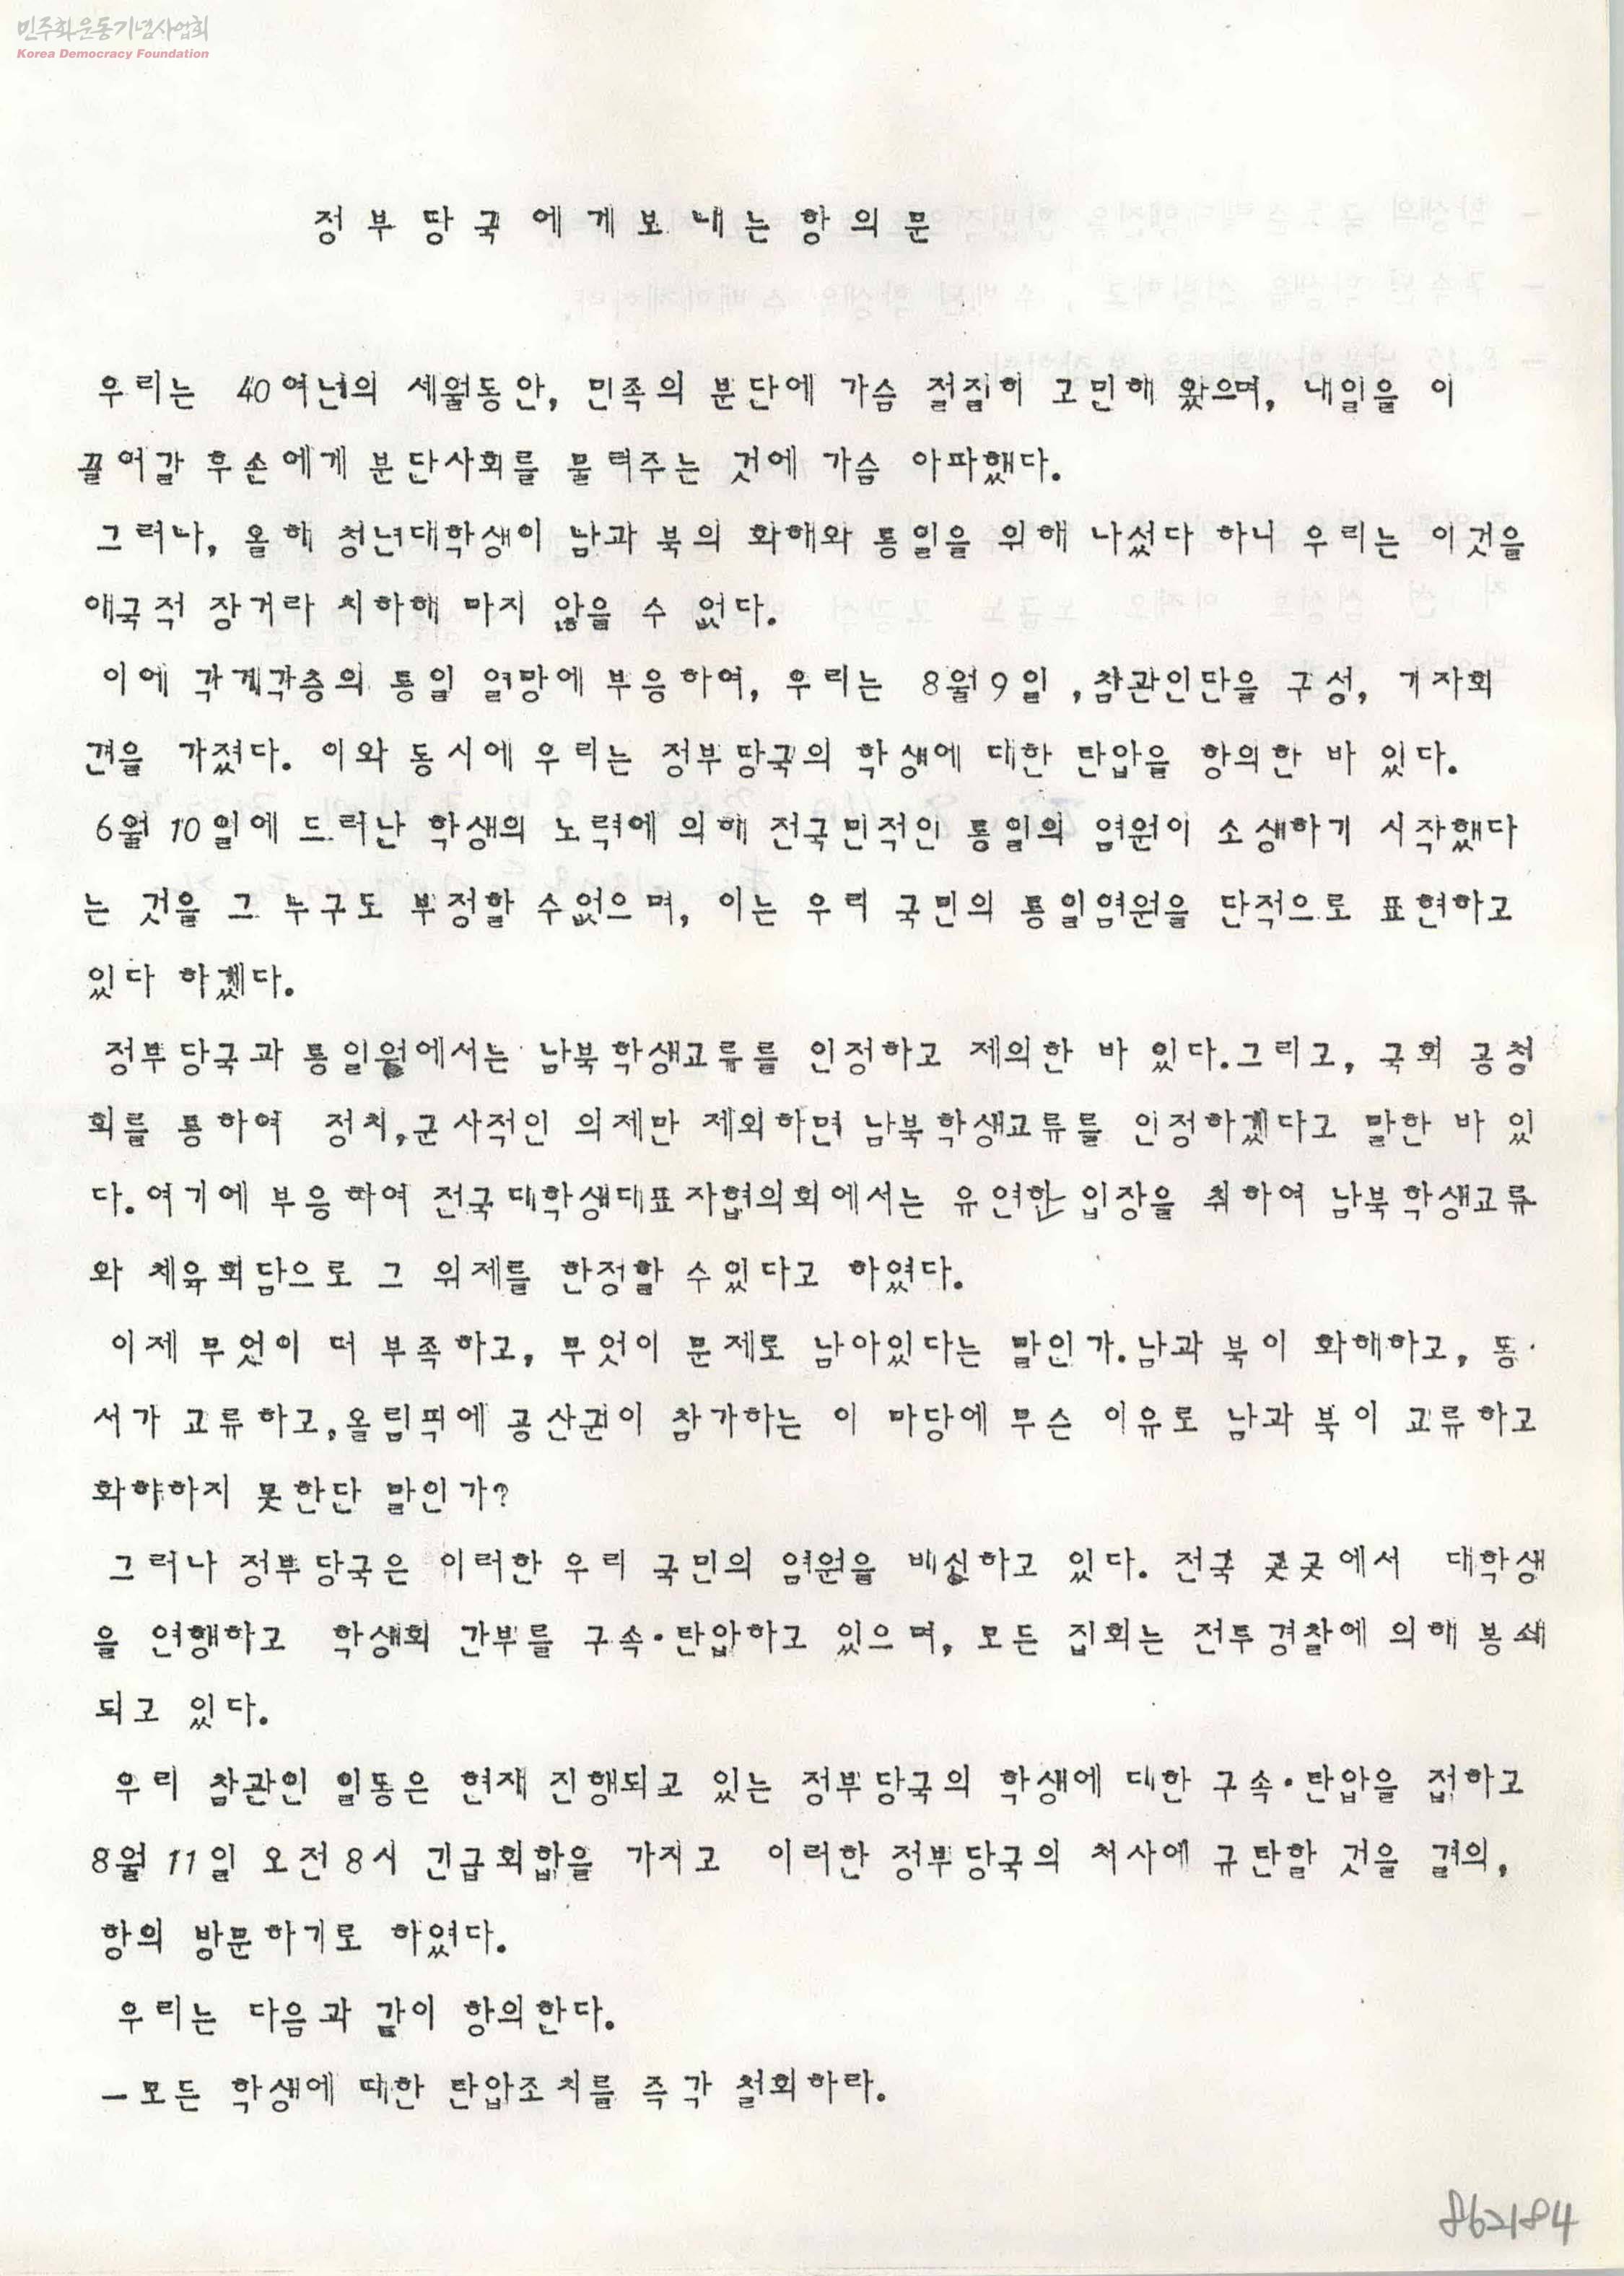 민주화운동기념사업회
Korea Democracy Foundation
정부당국에게보내는항의문
우리는 40여년의 세월동안, 민족의 분단에 가슴 절절히 고민해 왔으며, 내일을 이
끌어갈 후손에게 분단사회를 물려주는 것에 가슴 아파했다.
그러나, 올해 청년대학생이 남과 북의 화해와 통일을 위해 나섰다 하니 우리는 이것을
애국적 장거라 치하해 마지 않을 수 없다.
이에 각계각층의 통일 열망에 부응하여, 우리는 8월9일 ,참관인단을 구성, 기자회
견을 가졌다. 이와 동시에 우리는 정부당국의 학생에 대한 탄압을 항의한 바 있다.
6월 10일에 드러난 학생의 노력에 의해 전국민적인 통일의 염원이 소생하기 시작했다
는 것을 그 누구도 부정할 수없으며, 이는 우리 국민의 통일염원을 단적으로 표현하고
있다 하겠다.
정부당국과 통일원에서는 남북학생교류를 인정하고 제의한 바 있다.그리고, 국회 공청
회를 통하여 정치,군사적인 의제만 제외하면 남북학생교류를 인정하겠다고 말한 바 있
다.여기에 부응하여 전국대학생대표자협의회에서는 유연한 입장을 취하여 남북학생교류
와 체육회담으로 그 의제를 한정할 수있다고 하였다.
이제 무엇이 더 부족하고, 무엇이 문제로 남아있다는 말인가.남과 북이 화해하고, 동·
서가 교류하고,올림픽에 공산권이 참가하는 이 마당에 무슨 이유로 남과 북이 교류하고
화햐하지 못한단 말인가?
그러나 정부당국은 이러한 우리 국민의 염원을 배신하고 있다. 전국 곳곳에서 대학생
을 연행하고 학생회 간부를 구속·탄압하고 있으며, 모든 집회는 전투경찰에 의해 봉쇄
되고 있다.
우리 참관인 일동은 현재 진행되고 있는 정부당국의 학생에 대한 구속·탄압을 접하고
8월 11일 오전8시 긴급회합을 가지고 이러한 정부당국의 처사에 규탄할 것을 결의,
항의 방문하기로 하였다.
우리는 다음과 같이 항의한다.
-모든 학생에 대한 탄압조치를 즉각 철회하라.
862184